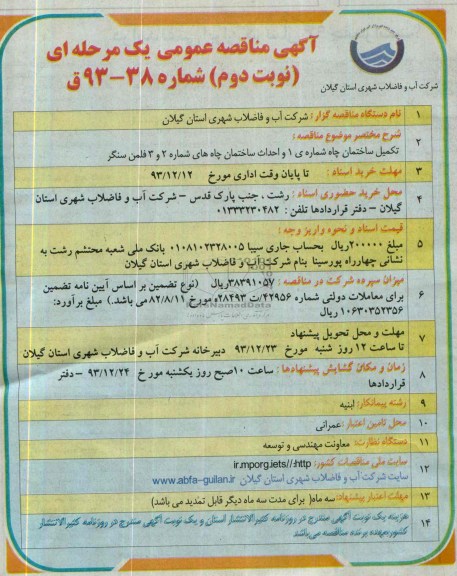 آگهی مناقصه عمومی یک مرحله ای
(نوبت دوم) شماره ۳۸-۹۳ق
شرکت آب و فاضلاب شهری استان گیلان
۱ نام دستگاه مناقصه گزار: شرکت آب و فاضلاب شهری استان گیلان
۲ شرح مختصر موضوع مناقصه:
تکمیل ساختمان چاه شماره ی ۱ و احداث ساختمان چاه های شماره ۲ و ۳ فلمن سنگر
۳ مهلت خرید اسناد: تا پایان وقت اداری مورخ ۹۳/۱۲/۱۲
۴ محل خرید حضوری اسناد: رشت، جنب پارک قدس – شرکت آب و فاضلاب شهری استان
گیلان – دفتر قراردادها تلفن: ۰۱۳۳۳۲۳۰۴۸۲
قیمت اسناد و نحوه واریز وجه:
۵ مبلغ ۲۰۰۰۰۰ ریال بحساب جاری سیبا ۰۱۰۸۱۰۲۳۲۸۰۰۵ بانک ملی شعبه محتشم رشت به
نشانی چهارراه پورسینا بنام شرکت آب و فاضلاب شهری استان گیلان
میزان سپرده شرکت در مناقصه: ۳۸۳۹۱۰۵۷ ریال (نوع تضمین بر اساس آیین نامه تضمین
۶ برای معاملات دولتی شماره ۴۲۹۵۶/ت ۲۸۴۹۳ه مورخ ۸۲/۸/۱۱ می باشد.) مبلغ برآورد:
۱۰۶۳۰۳۵۲۳۵۶ ریال
۷ مهلت و محل تحویل پیشنهاد
تا ساعت ۱۲ روز شنبه مورخ ۹۳/۱۲/۲۳ دبیرخانه شرکت آب و فاضلاب شهری استان گیلان
۸ زمان و مکان گشایش پیشنهادها: ساعت ۱۰صبح روز یکشنبه مورخ ۹۳/۱۲/۲۴ – دفتر
قراردادها
۹ رشته پیمانکار: ابنیه
۱۰ محل تامین اعتبار: عمرانی
۱۱ دستگاه نظارت: معاونت مهندسی و توسعه
۱۲ سایت ملی مناقصات کشور: ir.mporg.iets//:http
سایت شرکت آب و فاضلاب شهری استان گیلان www.abfa-guilan.ir
۱۳ مهلت اعتبار پیشنهاد: سه ماه( برای مدت سه ماه دیگر قابل تمدید می باشد)
۱۴ هزینه یک نوبت آگهی مندرج در روزنامه کثیرالانتشار استان و یک نوبت آگهی مندرج در روزنامه کثیرالانتشار
کشور بعهده برنده مناقصه می باشد